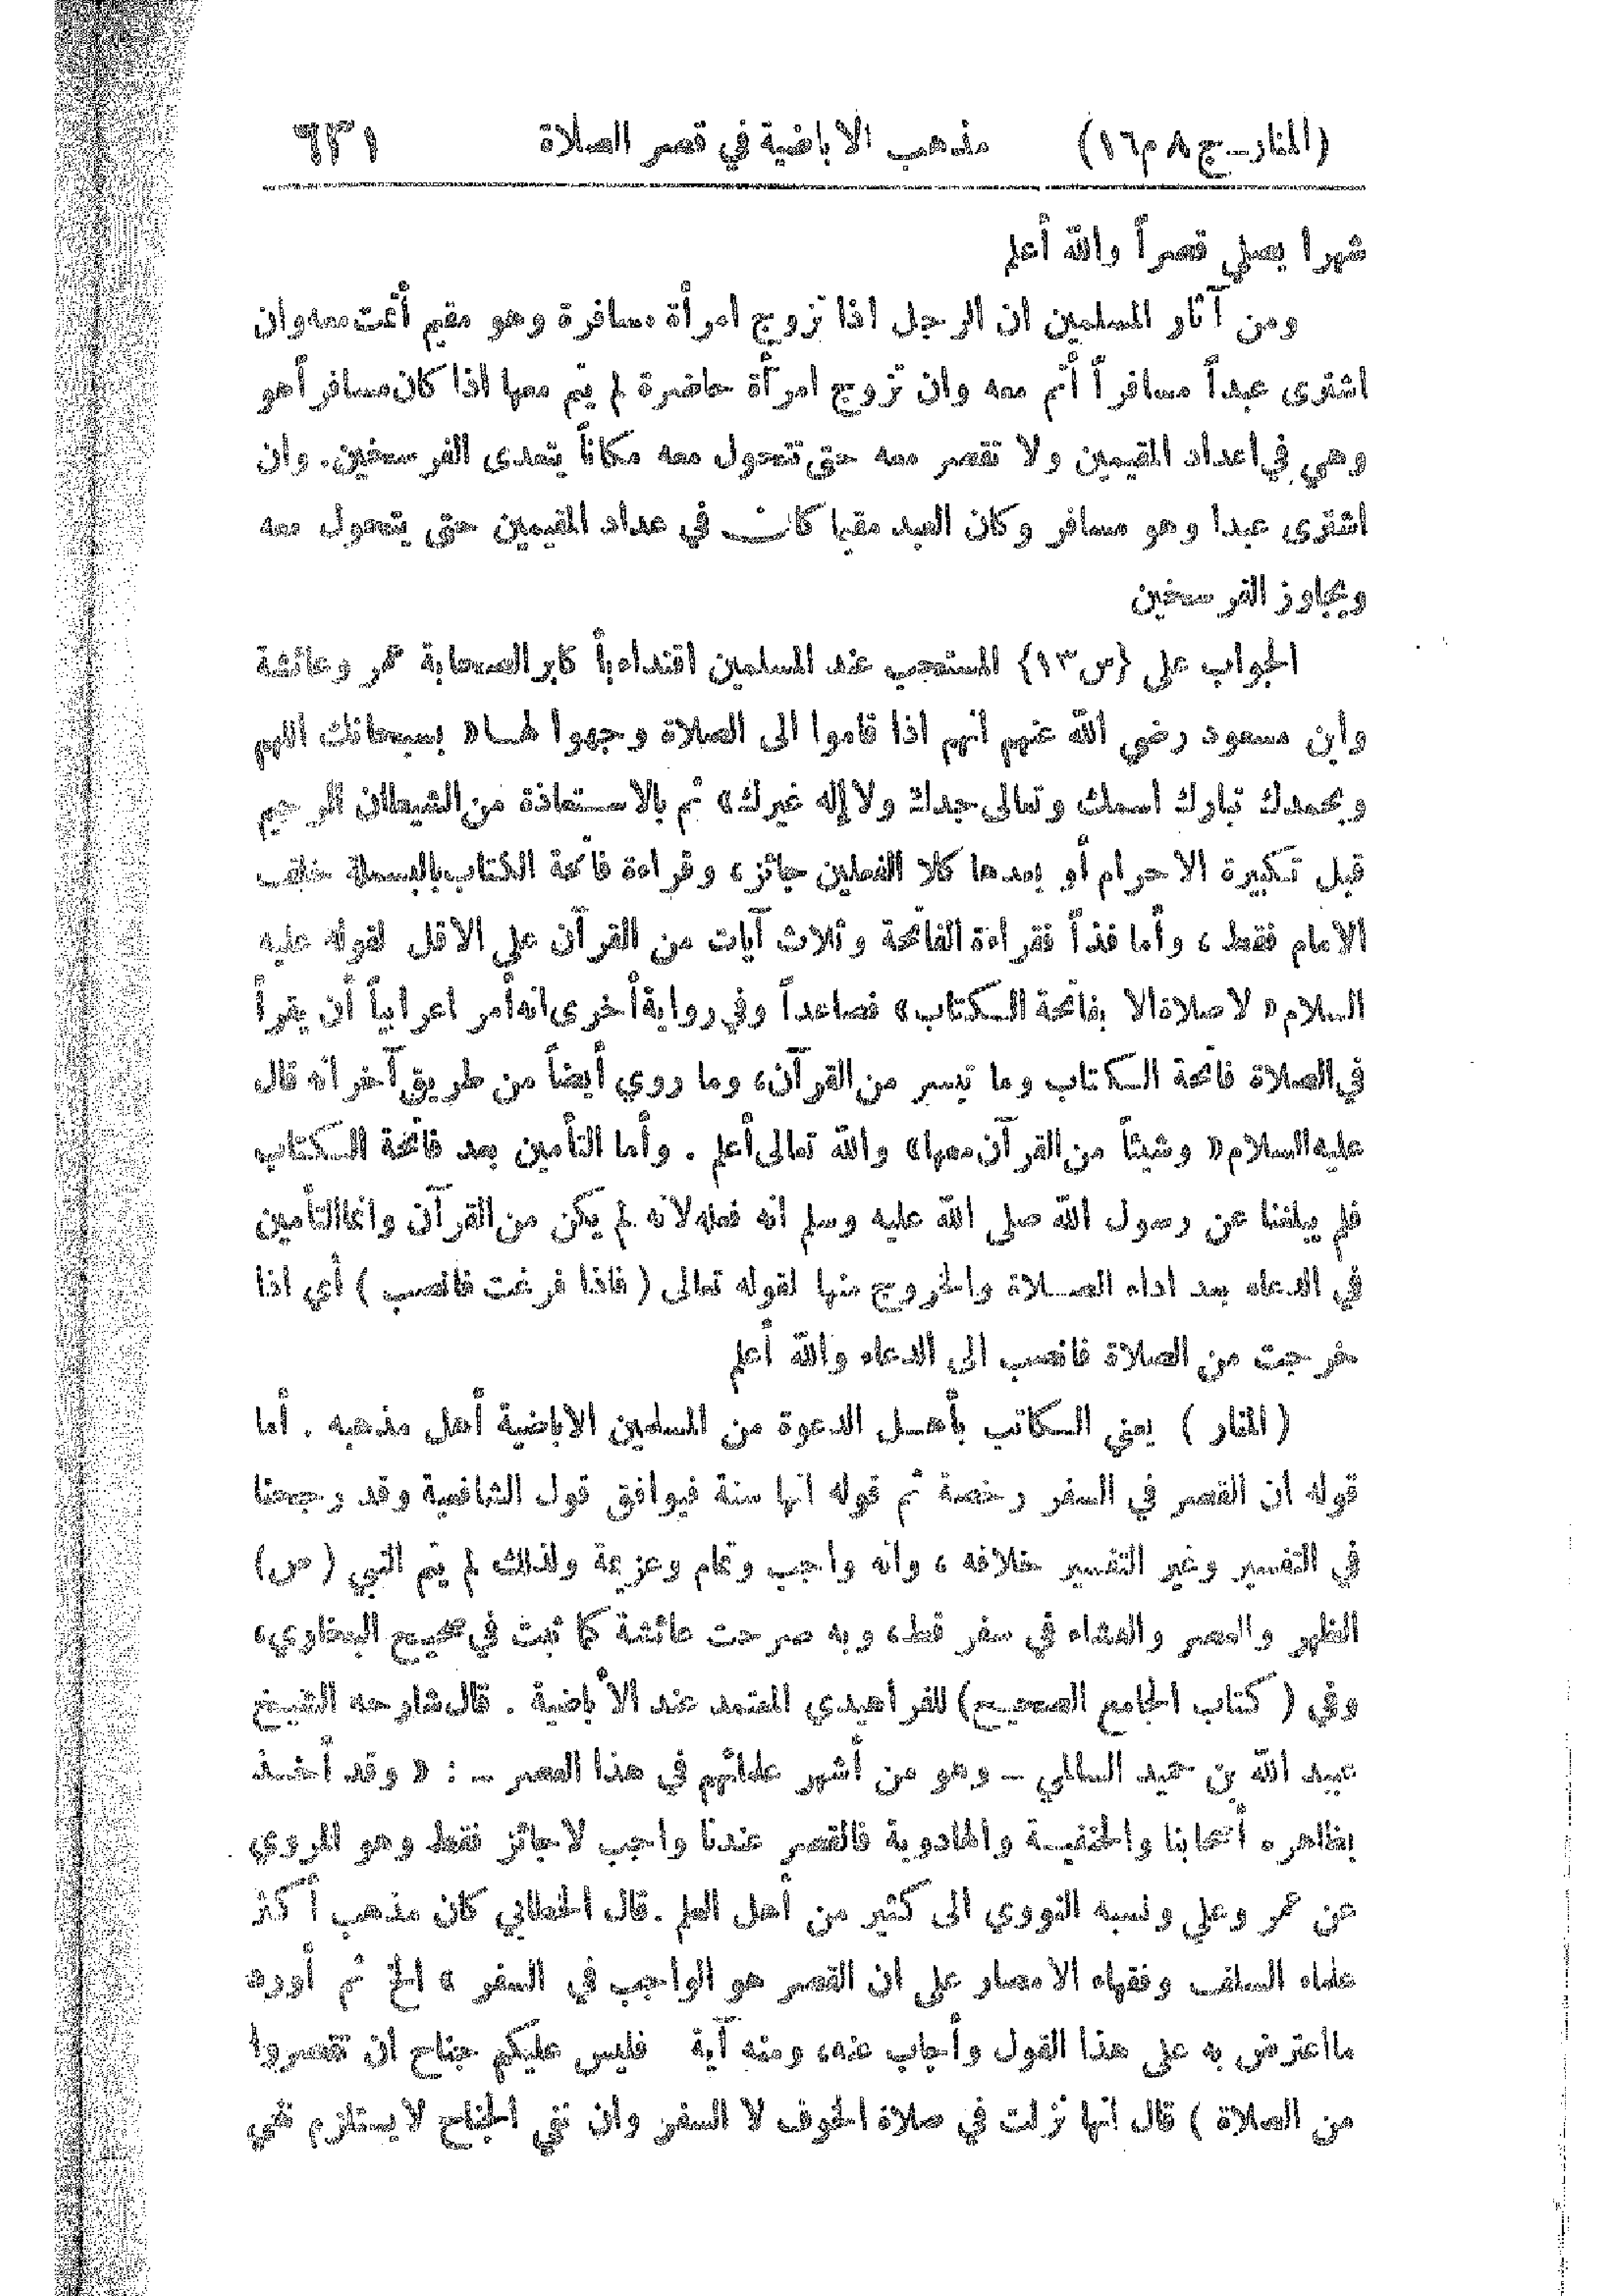 (المنار ـ ج ٨ م ١٦) مذهب الاباضية في قصر الصلاة ٦٣١
شهرا يصلي قصراً والله أعلم
ومن آثار المسلمين ان الرجل اذا تزوج امرأة مسافرة وهو مقيم أتمت معه وان
اشترى عبداً مسافراً أتم معه وان تزوج امرأة حاضرة لم يتم معها اذا كان مسافراً هو
وهي في اعداد المقيمين ولا تقصر معه حتى تتحول معه مكاناً يتعدى الفرسخين. وان
اشترى عبدا وهو مسافر وكان العبد مقيما كان في عداد المقيمين حتى يتحول معه
ويجاوز الفرسخين
الجواب على {س١٣} المستحب عند المسلمين اقتداء بأكابر الصحابة عمر وعائشة
وابن مسعود رضي الله عنهم انهم اذا قاموا الى الصلاة وجهوا لها « بسبحانك اللهم
وبحمدك تبارك اسمك وتعالى جدك ولا إله غيرك» ثم بالاستعاذة من الشيطان الرجيم
قبل تكبيرة الاحرام أو بعدها كلا الفعلين جائز، وقراءة فاتحة الكتاب بالبسملة خلف
الامام فقط ، وأما فذاً فقراءة الفاتحة وثلاث آيات من القرآن على الاقل لقوله عليه
السلام « لا صلاة الا بفاتحة الكتاب» فصاعداً وفي رواية أخرى انه أمر اعرابياً أن يقرأ
في الصلاة فاتحة الكتاب وما تيسر من القرآن، وما روي أيضاً من طريق آخر انه قال
عليه السلام « وشيئاً من القرآن معها» والله تعالى أعلم . وأما التأمين بعد فاتحة الكتاب
فلم يبلغنا عن رسول الله صلى الله عليه وسلم انه فعله لانه لم يكن من القرآن وانما التأمين
في الدعاء بعد اداء الصلاة والخروج منها لقوله تعالى ( فاذا فرغت فانصب ) أي اذا
خرجت من الصلاة فانصب الى الدعاء والله أعلم
( المنار ) يعني الكاتب بأهل الدعوة من المسلمين الاباضية أهل مذهبه . أما
قوله ان القصر في السفر رخصة ثم قوله انها سنة فيوافق قول الشافعية وقد رجحنا
في التفسير وغير التفسير خلافه ، وانه واجب وتمام وعزيمة ولذلك لم يتم النبي ( ص)
الظهر والعصر والعشاء في سفر قط، وبه صرحت عائشة كما ثبت في صحيح البخاري،
وفي ( كتاب الجامع الصحيح) للفراهيدي المعتمد عند الأباضية . قال شارحه الشيخ
عبد الله بن حميد السالمي ـ وهو من أشهر علمائهم في هذا العصر ـ : « وقد أخذ
بظاهره أصحابنا والحنفية والهادوية فالقصر عندنا واجب لا جائز فقط وهو المروي
عن عمر وعلي ونسبه النووي الى كثير من أهل العلم . قال الخطابي كان مذهب أكثر
علماء السلف وفقهاء الامصار على ان القصر هو الواجب في السفر » الخ ثم أورد
ما اعترض به على هذا القول وأجاب عنه، ومنه آية فليس عليكم جناح ان تقصروا
من الصلاة ) قال انها نزلت في صلاة الخوف لا السفر وان نفي الجناح لا يستلزم نفي